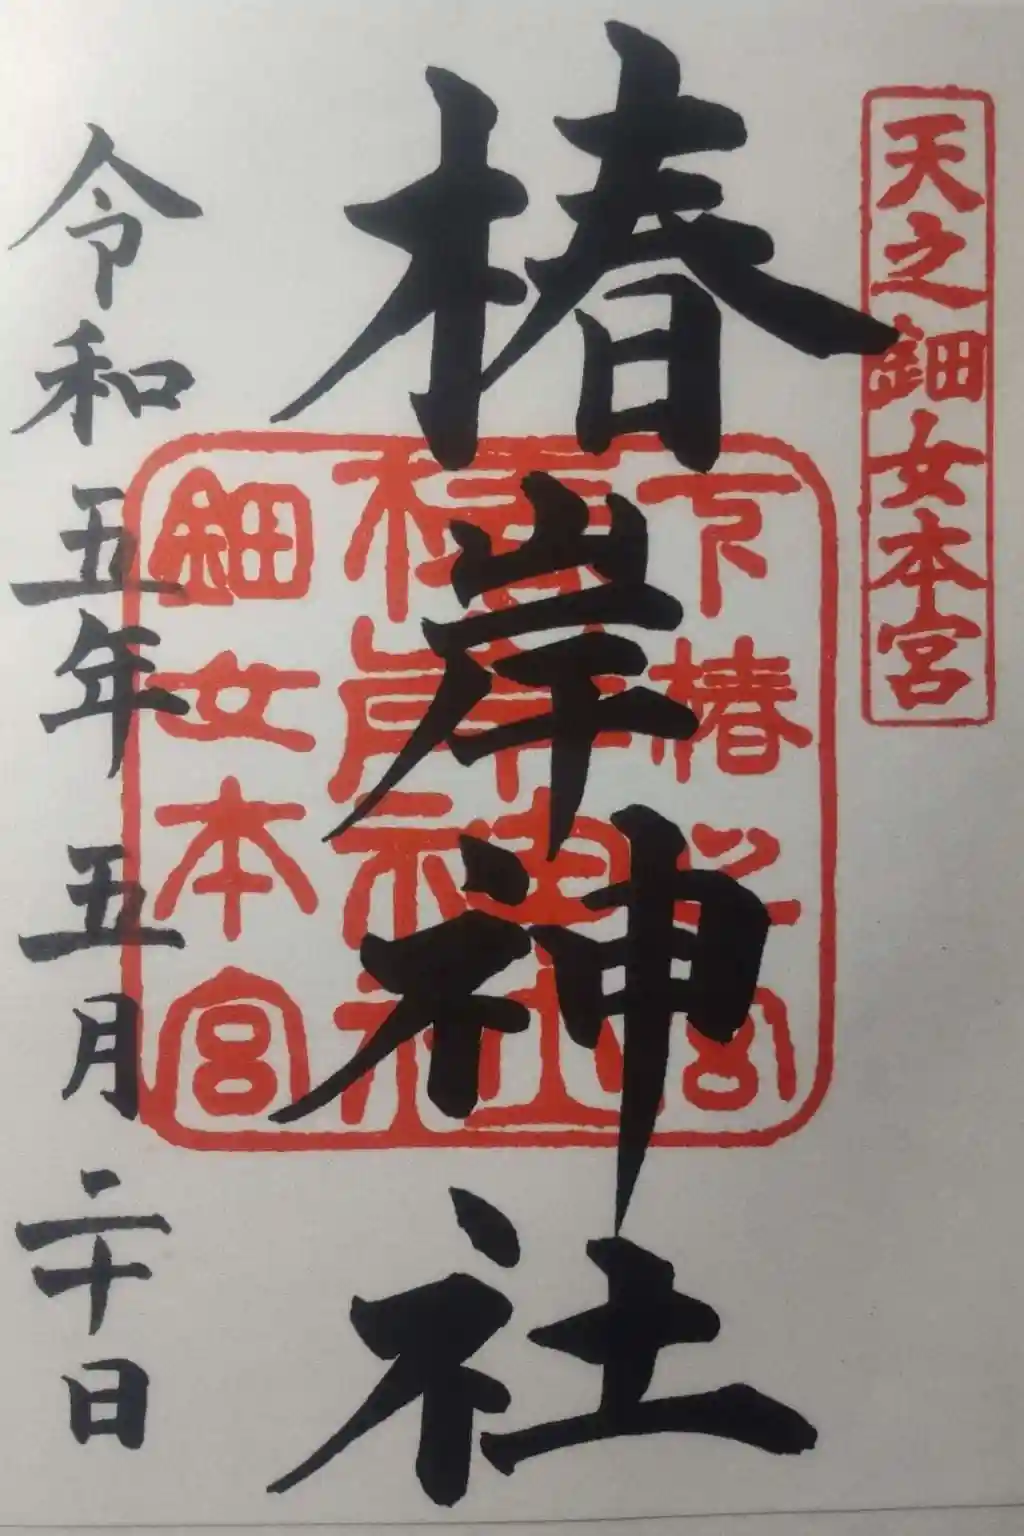 天之鈿女本宮
椿岸神社
下椿之宮
椿岸神社
鈿女本宮
令和五年五月二十日